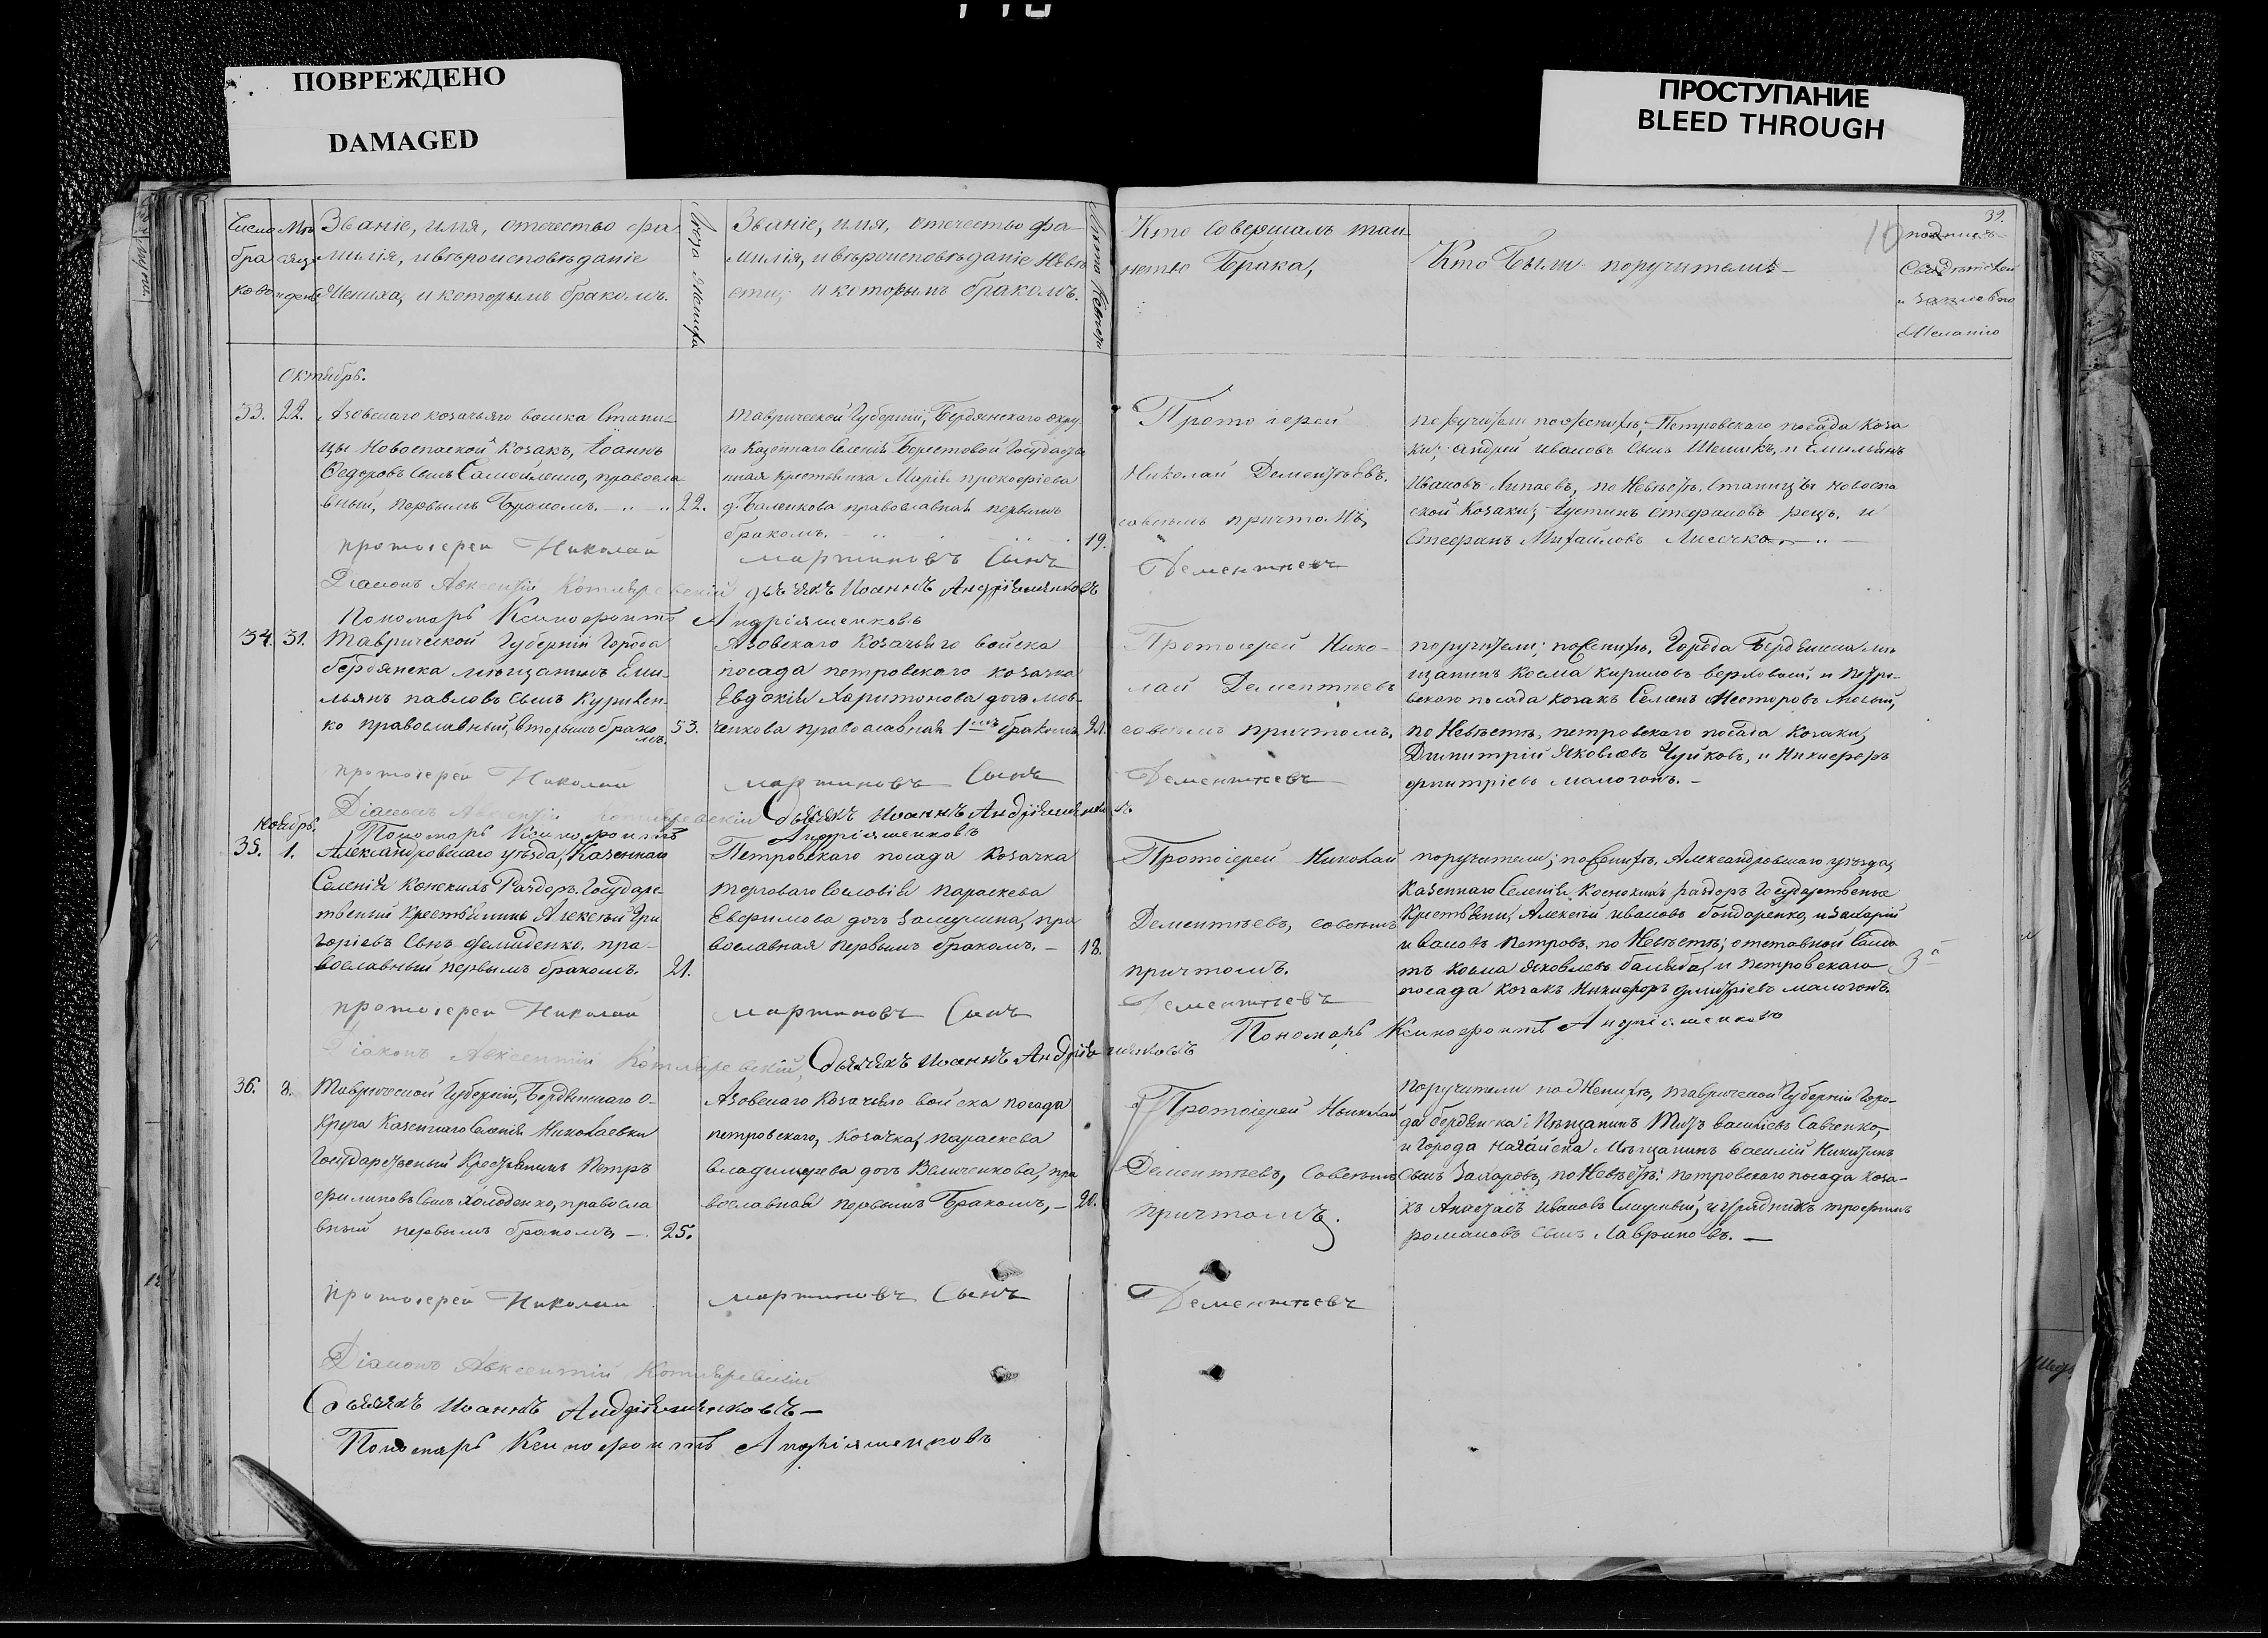 ПОВРЕЖДЕНО
DAMAGED
ПРОСТУПАНИЕ
BLEED THROUGH
39.
10
Число
бра
ковъ
Мѣ
сяцъ
и день
Званіе, имя, отечество фа
милія, и вѣроисповѣданіе
Жениха, и которымъ бракомъ.
Лѣта Жениха
Званіе, имя, отечество фа-
милія, и вѣроисповѣданіе Невѣ
сты, и которымъ бракомъ.
Лѣта Невѣсты
Кто совершалъ таи
нство Брака,
Кто были поручители
подпись
Свидѣтелей
и записъ по
Желанію
Октябрь.
33. 22.
Азовскаго козачьяго войска Стани-
цы Новоспаской козакъ, Іоаннъ
Ѳедоровъ сынъ Самойленко, правосла
вный, первымъ Бракомъ. 22.
Таврической Губерніи, Бердянскаго окру
га Казеннаго Селенія Берестовой Государстве
нная крестьянка Марія прокофіева
д. Баленкова православная первымъ
бракомъ. 19.
Протоіерей
Николай Дементьевъ.
совсемъ причтомъ,
поручители по женихѣ, Петровскаго посада Коза
ки; Андрей ивановъ сынъ Шешикъ, и Емильянъ
Ивановъ Липаевъ, по Невѣстѣ, Станицы Новоспа
ской Козаки; Іустинъ стефановъ рецъ, и
Стефанъ Михайловъ Лисечко
протоіереи Николаи мартиновъ Сынъ Дементиевъ
Діаконъ Авксентій Котляревскій дьячекъ Иоаннъ Андріяшенковъ
Пономарь Ксинофонтъ Андріяшенковъ
34. 31.
Таврической Губерніи Города
бердянска мѣщанинъ Еми-
льянъ павловъ сынъ Куривен-
ко православный, вторымъ брако
мъ. 53.
Азовскаго Козачьяго войска
посада петровского козачка
Евдокія Харитонова дочь мов-
ченкова православная 1мъ бракомъ 21.
Протоіерей Нико-
лай Дементьевъ
совсемъ причтомъ.
поручители; по женихѣ, Города Бердянска мѣ
щанинъ Косма кириловъ верховый, и петро-
вскаго посада козакъ Семенъ Несторовъ малый,
по Невѣстѣ, петровскаго посада Козаки,
Димитрій Яковлевъ Чуйковъ, и Никифоръ
дмитріевъ малогонъ.
протоіереи Николаи мартиновъ Сынъ Дементиевъ
Діаконъ Авксентій Котляревскій дьячекъ Иоаннъ Андріяшенковъ
Пономарь Ксинофонтъ Андріяшенковъ
Ноябрь.
35. 1.
Александровскаго уѣзда, Казеннаго
Селенія Конскихъ Раздоръ. Государс
твенный Крестьянинъ Алексѣй Гри
горіевъ Сынъ Демиденко, пра-
вославный первымъ бракомъ. 21.
Петровскаго посада козачка
торговаго Сословія параскева
Ефимова дочь Замулина, пра
вославная первымъ бракомъ. 18.
Протоіерей Николай
Дементьевъ, совсемъ
причтомъ.
поручители; по женихѣ, Александровскаго уѣзда,
Казеннаго Селенія Конскихъ раздоръ Государственые
Крестьяни, Алексѣй ивановъ бондаренко, и Захарій
ивановъ петровъ. по Невѣстѣ; отставной Солда
тъ Косма Яковлевъ балыба, и петровскаго
посада козакъ Никифоръ дмитріевъ малогонъ.
протоіереи Николаи мартиновъ Сынъ Дементиевъ
Діаконъ Авксентій Котляревскій, дьячекъ Иоаннъ Андріяшенковъ
Пономарь Ксинофонтъ Андріяшенковъ
36. 8.
Таврической Губерніи, Бердянскаго о-
Круга Казеннаго Селенія Николаевки
Государственый Крестьянинъ Петръ
филиповъ Сынъ холоденко, правосла
вный первымъ бракомъ, 25.
Азовскаго Козачьяго войска посада
петровскаго, козачка, параскева
владимирева дочь Величенкова, пра
вославная первымъ Бракомъ, 20.
Протоіерей Николай
Дементьевъ, Совсемъ
причтомъ.
Поручители по Женихѣ, таврической Губерніи Горо-
да бердянска: Мѣщанинъ Титъ василіевъ Савченко,
и города нагайска Мѣщанинъ василій Никитинъ
Сынъ Захаровъ, по Невѣстѣ: петровскаго посада коза-
къ Анастасъ ивановъ Слизкый, и урядникъ трофимъ
романовъ сынъ Лавриновъ.
протоіереи Николаи мартиновъ Сынъ Дементиевъ
Діаконъ Авксентій Котляревскій
дьячекъ Иоаннъ Андріяшенковъ
Пономарь Ксинофонтъ Андріяшенковъ